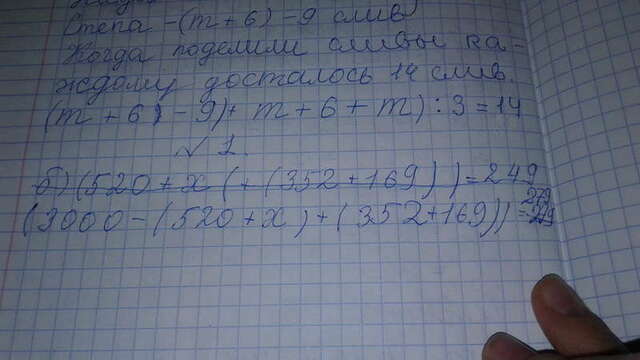 Степа -(m+6)-9 слив
Когда поделили сливы ка-
ждому досталось 14 слив.
(m+6)-9)+m+6+m):3=14
√ 1.
б) (520+x(+(352+169))=249
(3000-(520+x)+(352+169))=